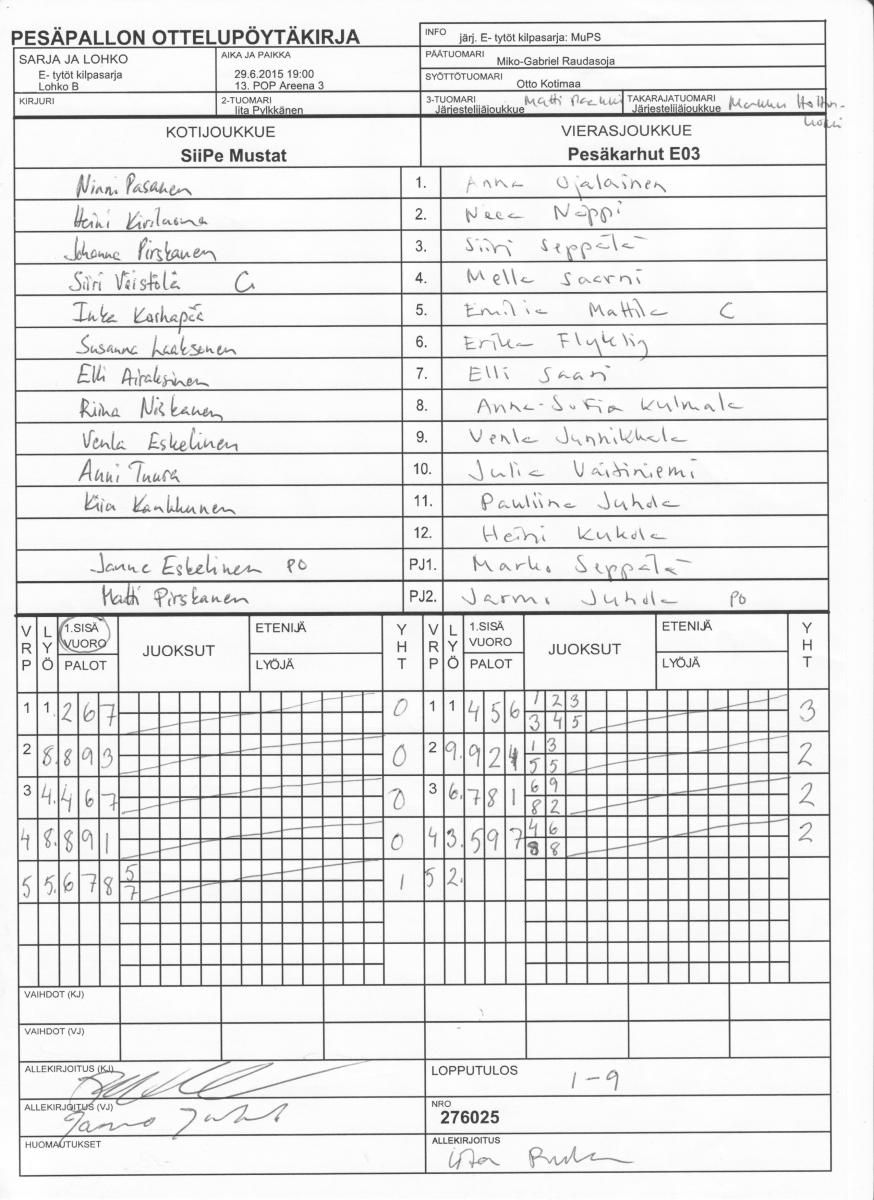 PESÄPALLON OTTELUPÖYTÄKIRJA
INFO järj. E- tytöt kilpasarja: MuPS
SARJA JA LOHKO
E- tytöt kilpasarja
Lohko B
AIKA JA PAIKKA
29.6.2015 19:00
13. POP Areena 3
PÄÄTUOMARI Miko-Gabriel Raudasoja
SYÖTTÖTUOMARI Otto Kotimaa
KIRJURI
2-TUOMARI
Iita Pylkkänen
3-TUOMARI Matti
Järjestelijäjoukkue
TAKARAJATUOMARI Markku
Järjestelijäjoukkue
KOTIJOUKKUE
SiiPe Mustat
VIERASJOUKKUE
Pesäkarhut E03
Ninni Pasanen 1. Anna Ojalainen
Heini 2. Neea Noppi
Johanna Pirskanen 3. Siiri Seppälä
Siiri Väistölä C 4. Mella Saarni
Inka Korhapää 5. Emilia Mattila C
Susanna Laaksonen 6. Erika
Elli Airaksinen 7. Elli Saari
Riina Niskanen 8. Anna-Sofia Kulmala
Venla Eskelinen 9. Venla Junnikkala
Anni Tuura 10. Julia Väitiniemi
Kiia Kankkunen 11. Pauliina Juhola
12. Heini Kukola
Janne Eskelinen PO PJ1. Marko Seppälä
Matti Pirskanen PJ2. Jarmo Juhola PO
VRP LYÖ 1.SISÄ VUORO PALOT JUOKSUT ETENIJÄ LYÖJÄ YHT VRP LYÖ 1.SISÄ VUORO PALOT JUOKSUT ETENIJÄ LYÖJÄ YHT
1 1. 2 6 7 0 1 1 4 5 6 1 2 3 3
3 4 5
2 8. 8 9 3 0 2 9. 9 2 4 1 3 2
5 5
3 4. 4 6 7 0 3 6. 7 8 1 6 9 2
8 2
4 8. 8 9 1 0 4 3. 5 9 7 4 6 2
8 8
5 5. 6 7 8 5 1 5 2.
7
VAIHDOT (KJ)
VAIHDOT (VJ)
ALLEKIRJOITUS (KJ)
LOPPUTULOS 1-9
ALLEKIRJOITUS (VJ)
NRO
276025
HUOMAUTUKSET
ALLEKIRJOITUS